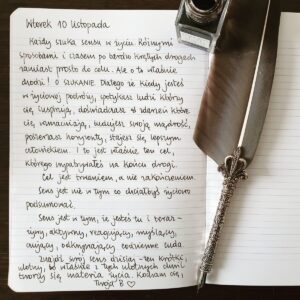 Wtorek 10 listopada
Każdy szuka sensu w życiu różnymi
sposobami i czasem po bardzo krętych drogach
zamiast prosto do celu. Ale o to właśnie
chodzi! O SZUKANIE. Dlatego że kiedy jesteś
w życiowej podróży, spotykasz ludzi, którzy
Cię , doświadczasz zdarzeń które
Cię wzmacniają, budujesz swoją mądrość,
poszerzasz horyzonty, stajesz się lepszym
człowiekiem. I to jest właśnie ten cel,
którego wypatrywałeś na końcu drogi.
Cel jest trwaniem, a nie zakończeniem.
Sens jest nie w tym co chciałbyś życiowo
podsumować.
Sens jest w tym, że jesteś tu i teraz -
żywy, aktywny, reagujący, myślący,
czujący, odkrywający codzienne cuda.
Znajdź swój sens dzisiaj - ten krótki,
ulotny, bo właśnie z tych ulotnych chwil
tworzy się materia życia. Kocham Cię,
Twoja B ♡